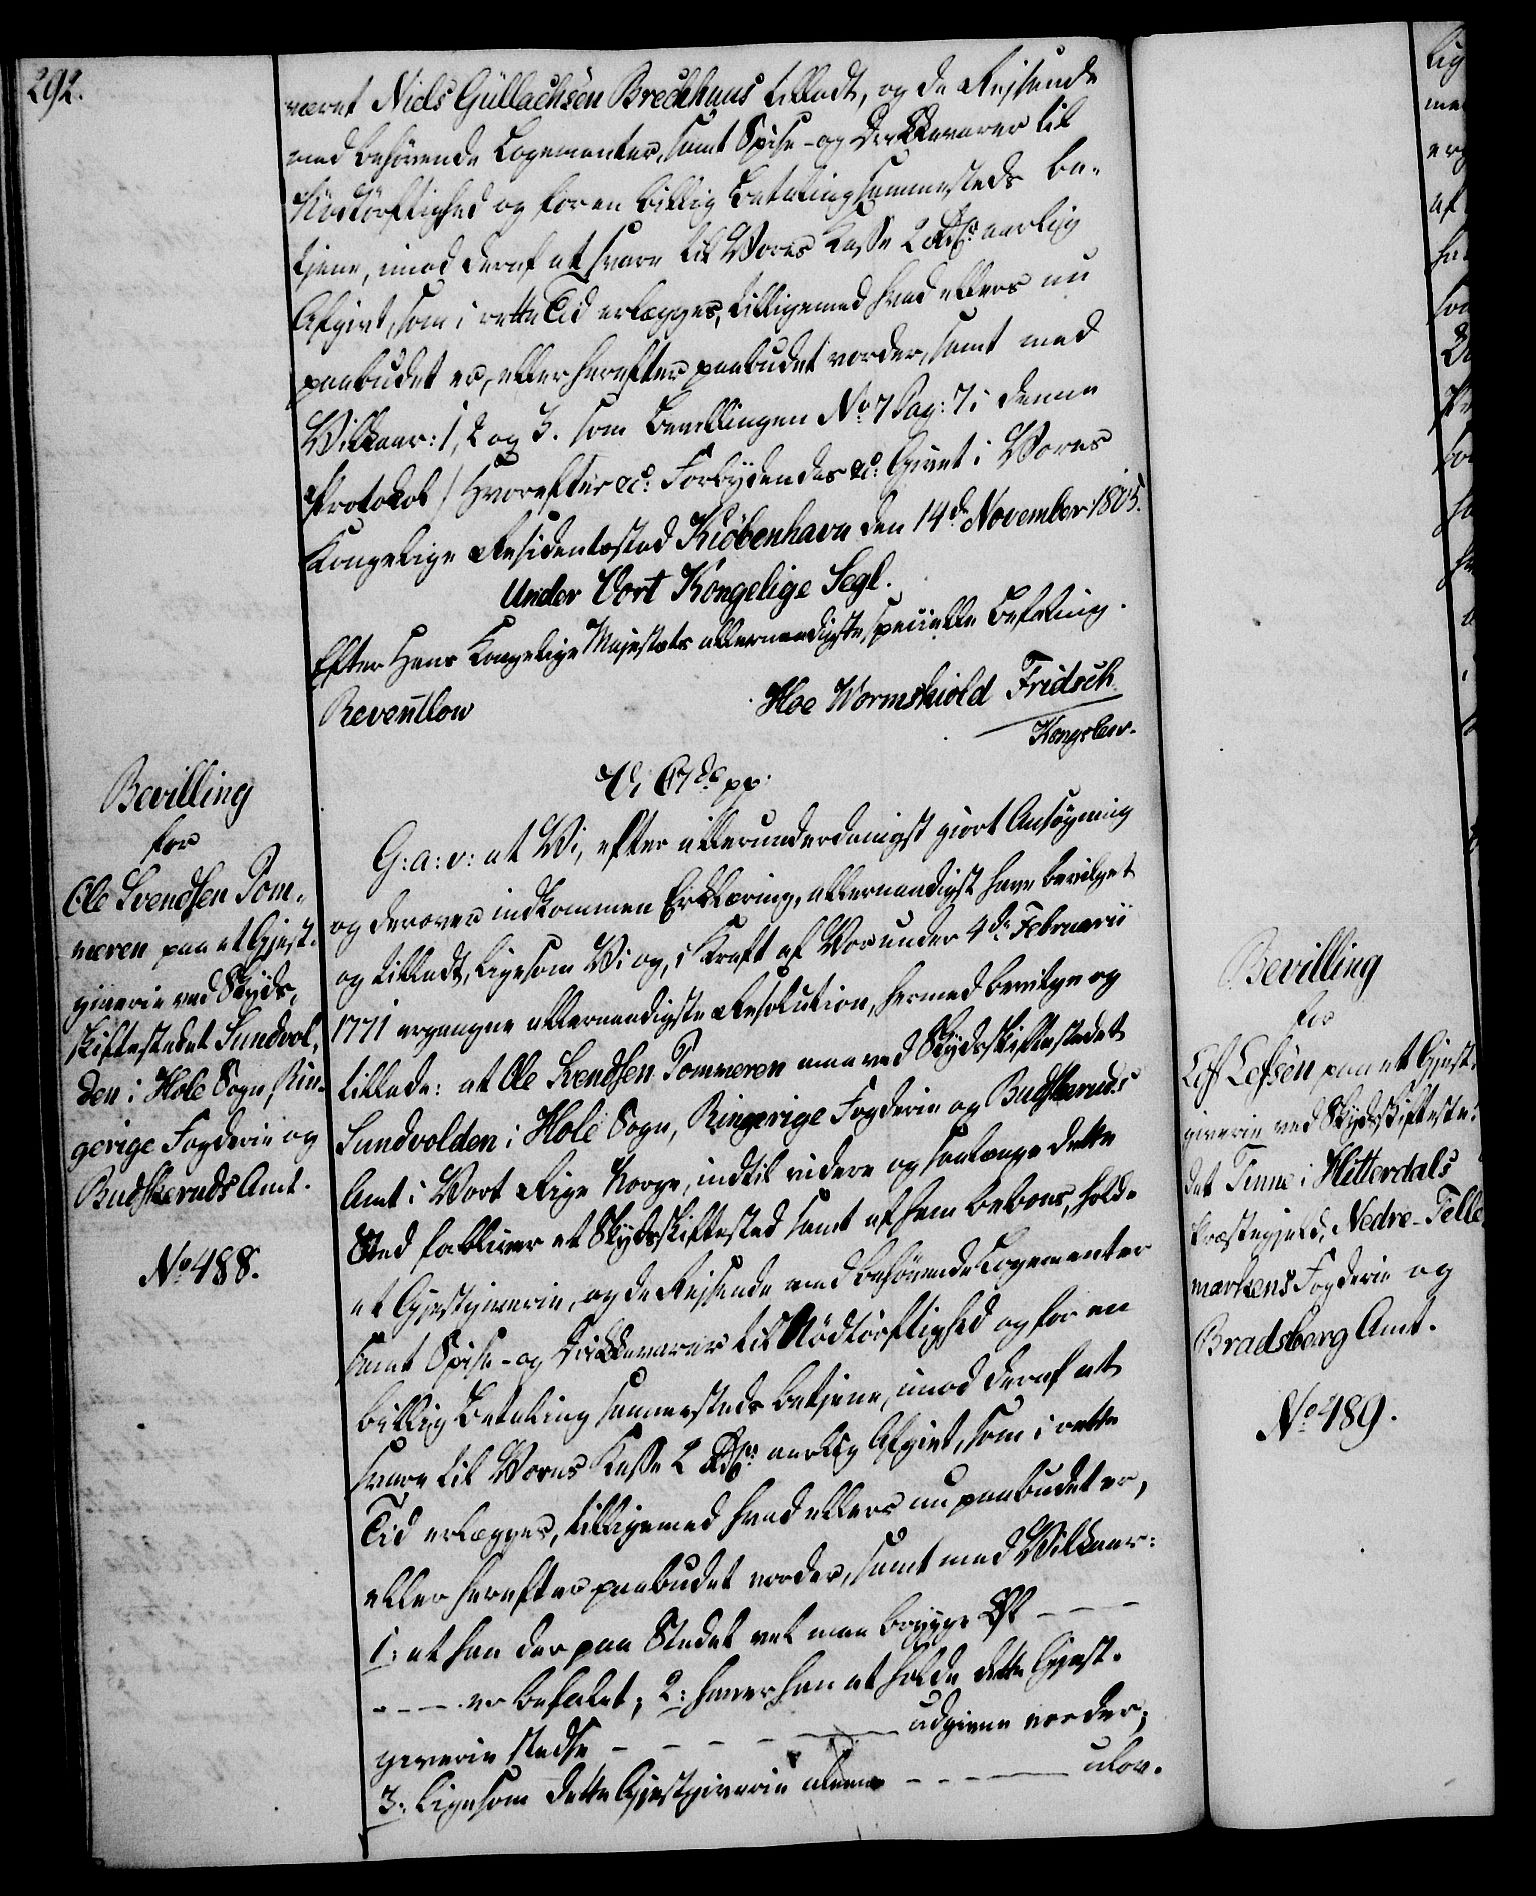 292.
været Niels Güllachsen Brechhuus tilladt, og de Rejsende
med behövende Logementer, samt Spise- og Drikkevarer til
Nödtörftighed og for en billig Betaling sammesteds be-
tjene, imod deraf at svare til Vores Kasse 2 Rdlr aarlig
Afgivt, som i rette Tid erlægges, tilligemed hvad ellers nu
paabudet er, eller herefter paabudet vorder, samt med
Vilkaar: 1, 2 og 3. som Bevillingen No 7 Pag: 7 i denne
Protokol / Hvorefter &c: Forbydendes &c: Givet i Vores
Kongelige Residentsstad Kiöbenhavn den 14de November 1805.
Under Vort Kongelige Segl.
Efter Hans Kongelige Majestæts allernaadigste specielle Befaling.
Reventlow
Hoe Wormskiold Fridsch
Kongslev.
Bevilling
for
Ole Svendsen Pom-
meren paa et Gjest-
giverie ved Skyds-
skiftestedet Sundvol-
den i Hole Sogn, Rin-
gerige Fogderie og
Budskeruds Amt.
No 488.
V. C. 7de pp.
G: a: v: at Vi, efter allerunderdanigst giort Ansögning
og derover indkommen Erklæring, allernaadigst have bevilget
og tilladt, ligesom Vi og, i Kraft af Vor under 4de Februarii
1771 ergangne allernaadigste Resolution, hermed bevilge og
tillade: at Ole Svendsen Pommeren maa ved Skydsskiftestedet
Sundvolden i Hole Sogn, Ringerige Fogderie og Budskeruds
Amt i Vort Rige Norge, indtil videre og saalænge dette
Sted forbliver et Skydsskiftested samt af ham beboes, holde
et Gjestgiverie, og de Rejsende med behövende Logementer
samt Spise- og Drikkevarer til Nödtörftighed og for en
billig Betaling sammesteds betjene, imod deraf at
svare til Vores Kasse 2 Rdlr aarlig Afgivt, som i rette
Tid erlægges, tilligemed hvad ellers nu paabudet er,
eller herefter paabudet vorder, samt med Vilkaar:
1: at han der paa Stedet vel maa brygge Øl - - -
- - - er befalet; 2: haver han at holde dette Gjest-
giverie stedse - - - - - udgiven vorder;
3: ligesom dette Gjestgiverie alene - - - - - alov.
Bevilling
for
Lef Lefsön paa et Gjest-
giverie ved Skydsskifteste-
det Tinne i Hitterdals
Præstegjeld, Nedre-Telle-
markens Fogderie og
Bradsberg Amt.
No 489.